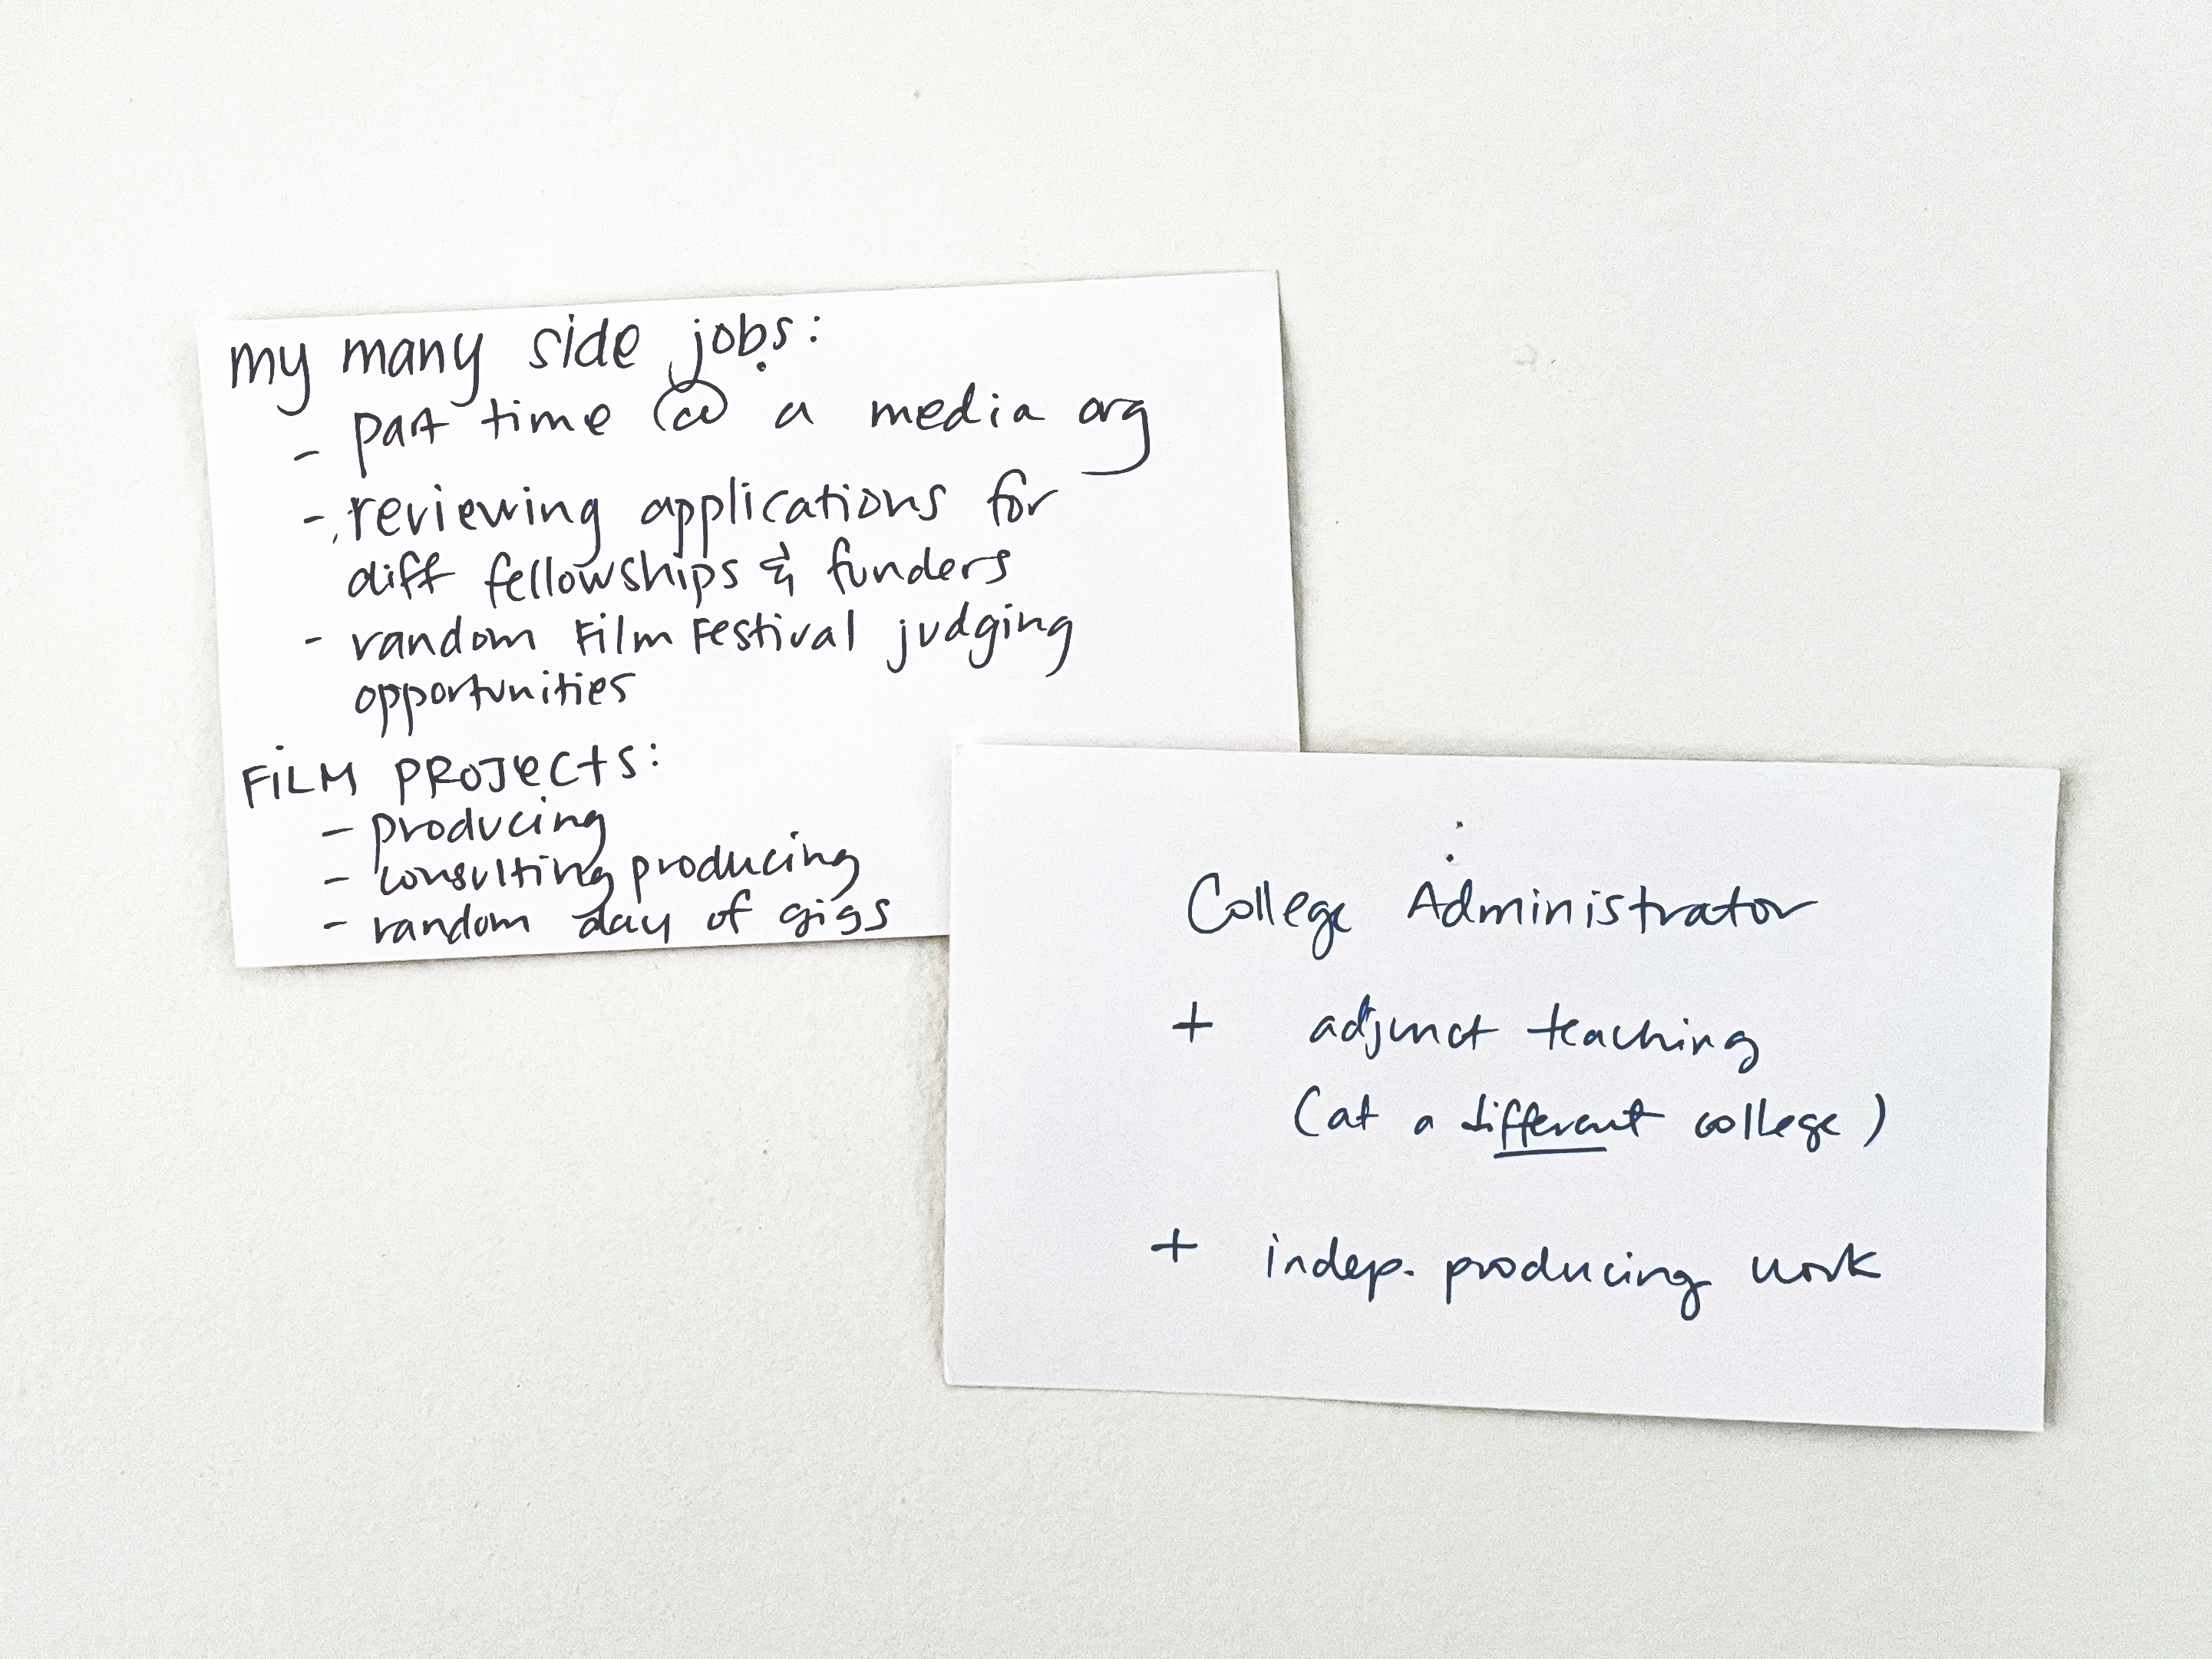 my many side jobs:
- part time @ a media org
- reviewing applications for
diff fellowships & funders
- random Film Festival judging
opportunities
FiLM PROJeCtS:
- producing
- consulting producing
- random day of gigs
College Administrator
+ adjunct teaching
(at a different college)
+ indep. producing work